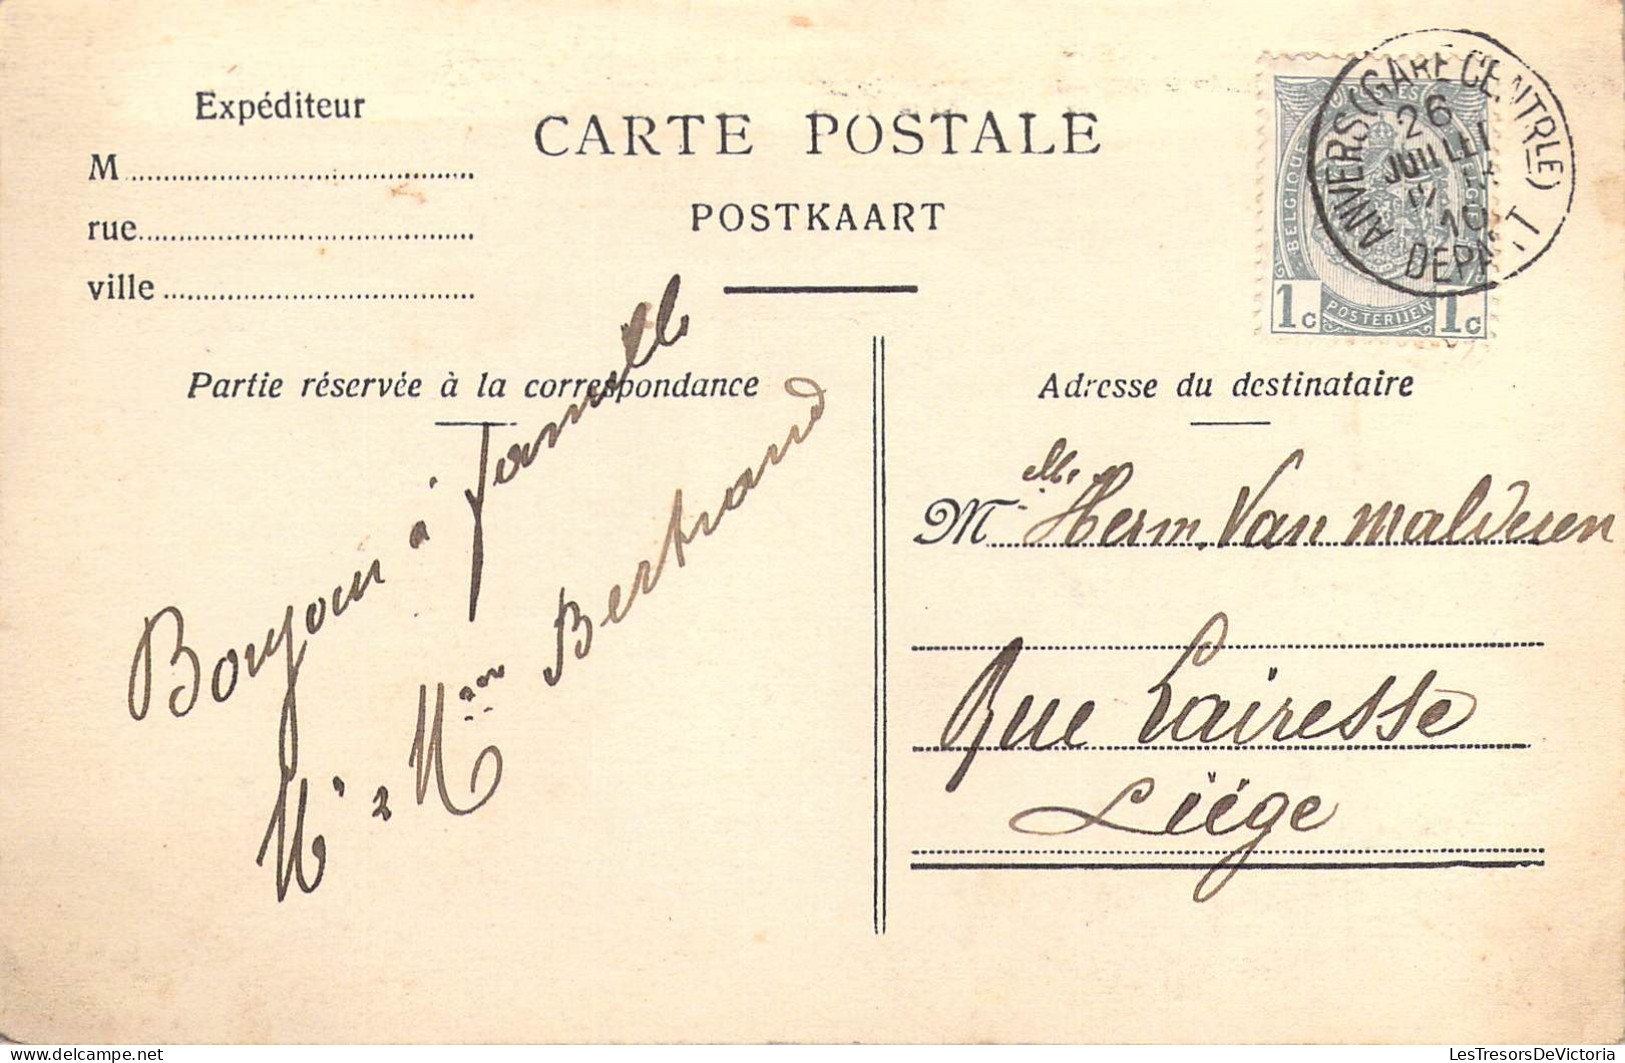 Expéditeur
M
rue
ville
CARTE POSTALE
POSTKAART
ANVERS (GARE CENTRLE)
26
JUILLET
10
DEPART
BELGIQUE
1c POSTERIJEN 1c
Partie réservée à la correspondance
Bonjour à famille
Mr & Mme Bertrand
Adresse du destinataire
Mr Herm. Van malderen
Rue Lairesse
Liége
LesTresorsDeVictoria